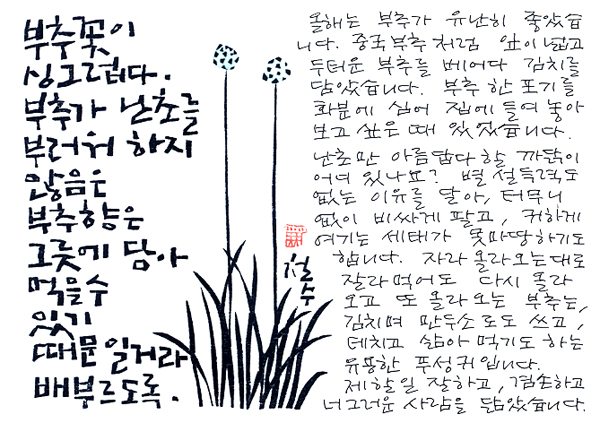 부추꽃이
싱그럽다.
부추가 난초를
부러워 하지
않음은
부추향은
그릇에 담아
먹을수
있기
때문일거라
배부르도록.
철수
올해는 부추가 유난히 좋았습
니다. 중국부추처럼 잎이 넓고
두터운 부추를 베어다 김치를
담았습니다. 부추 한 포기를
화분에 심어 집에 들여 놓아
보고 싶은 때 있었습니다.
난초만 아름답다 할 까닭이
어디 있나요? 별 설득력도
없는 이유를 달아, 터무니
없이 비싸게 팔고, 귀하게
여기는 세태가 못마땅하기도
합니다. 자라 올라오는대로
잘라 먹어도 다시 올라
오고 또 올라 오는 부추는,
김치며 만두소로도 쓰고,
데치고 삶아 먹기도 하는
유용한 푸성귀입니다.
제 할 일 잘하고, 겸손하고
너그러운 사람을 닮았습니다.